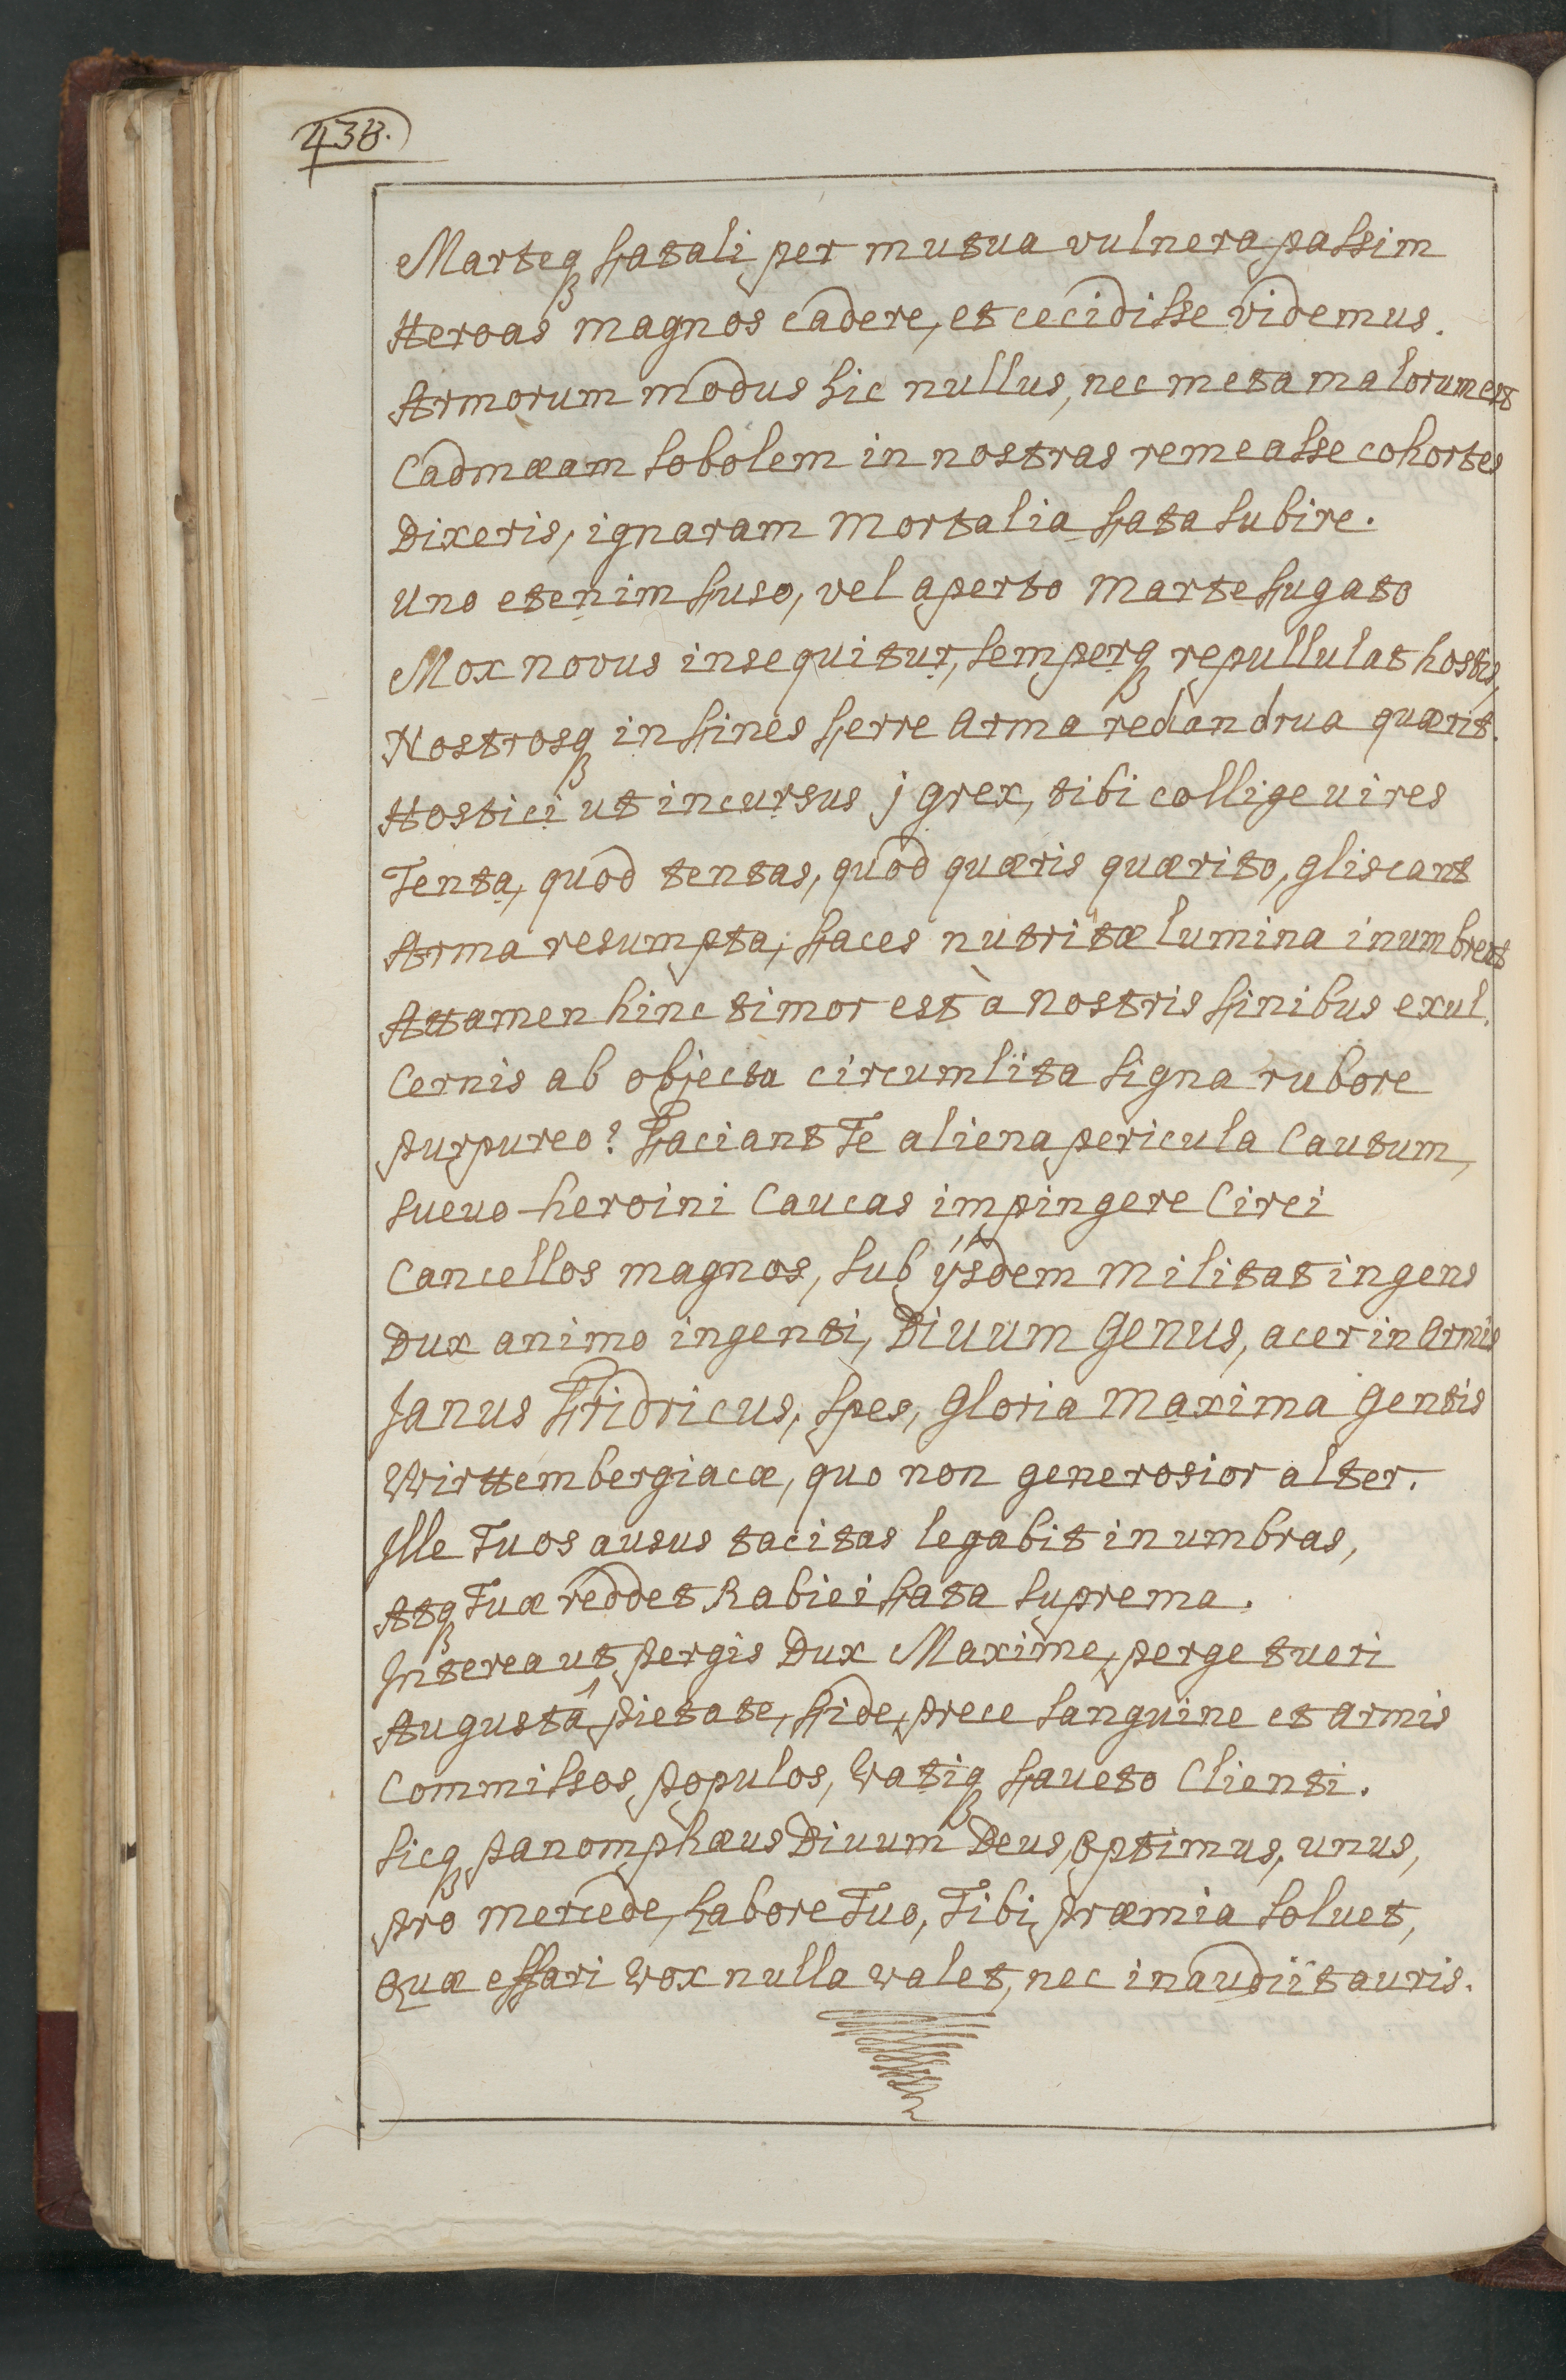 438.
Marteqꝫ fatali per mutua vulnera passim
Heroas magnos cadere, et cecidisse videmus.
Armorum modus hic nullus, nec meta malorum est
Cadmæam sobolem in nostras remeasse cohortes
Dixeris, ignaram mortalia fata subire.
Uno etenim fuso, vel aperto Marte fugato
Mox novus insequitur, semperqꝫ repullulat hostis,
Nostrosqꝫ in fines ferre arma rediandrua quærit.
Hostici ut incursus j grex, tibi collige uires
Tenta, quod tentas, quod quæris quærito, gliscant
Arma resumpta, faces nutritæ lumina inumbrent
Attamen hinc timor est à nostris finibus exul.
Cernis ab objecta circumlita signa rubore
purpureo? Faciant Te aliena pericula cautum,
sueuo-heroini Caucas impingere Circi
Cancellos magnos, sub ijsdem militat ingens
Dux animo ingenti, Diuum Genus, acer in armis
Janus Fridricus, spes, Gloria maxima Gentis
Wirttembergiacæ, quo non generosior alter.
Ille Tuos ausus tacitas legabit in umbras,
Atqꝫ Tuæ reddet Rabiei fata suprema.
Interea ut pergis Dux Maxime, perge tueri
Augustâ pietate, fide, prece sanguine et armis
Commissos populos, Vatiqꝫ faueto Clienti.
Sicqꝫ panomphæus Diuum Deus, optimus, unus,
Pro mercede, Labore Tuo, Tibi præmia soluet,
Quæ effari vox nulla valet, nec inaudiit auris.